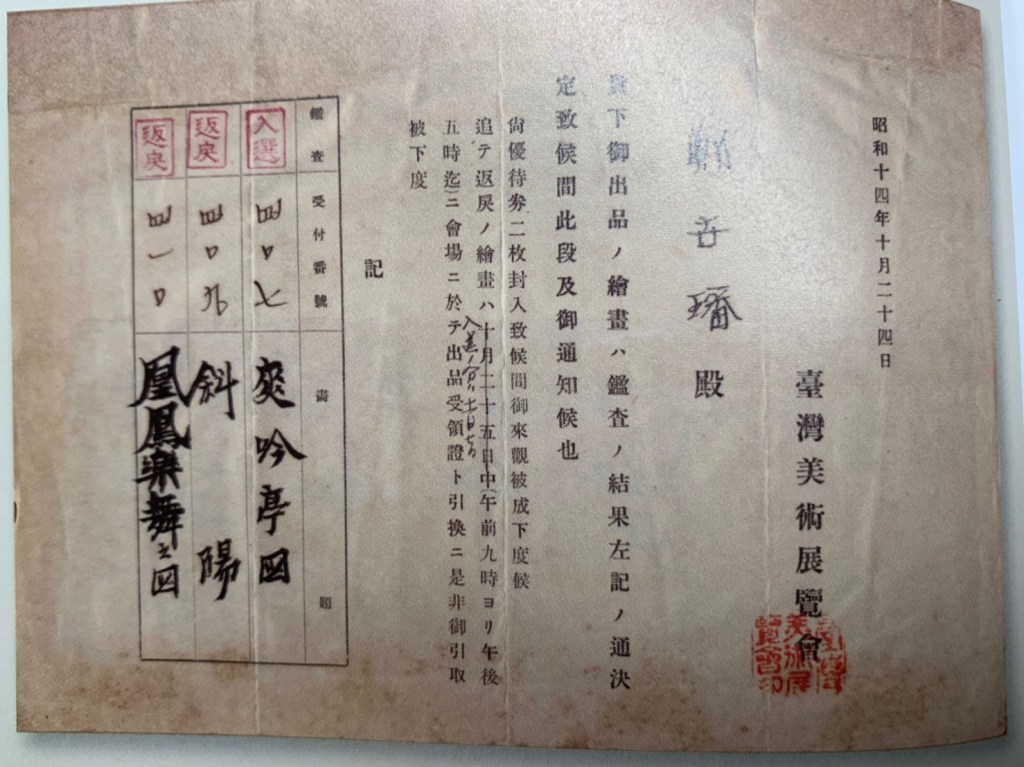 昭和十四年十月二十四日
臺灣美術展覽會
殿
貴下御出品ノ繪畫ハ鑑査ノ結果左記ノ通決
定致候間此段及御通知候也
尙優待券二枚封入致候間御來觀被成下度候
追テ返戾ノ繪畫ハ十月二十五日中(午前九時ヨリ午後
五時迄)ニ會場ニ於テ出品受領證ト引換ニ是非御引取
被下度
記
鑑査 受付番號 畵題
入選 四〇七 爽吟亭図
返戾 四〇九 斜陽
返戾 四一〇 凰鳳樂舞之図